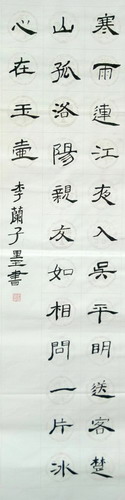 寒雨連江夜入吳平明送客楚
山孤洛陽親友如相問一片冰
心在玉壺
李蘭子墨書